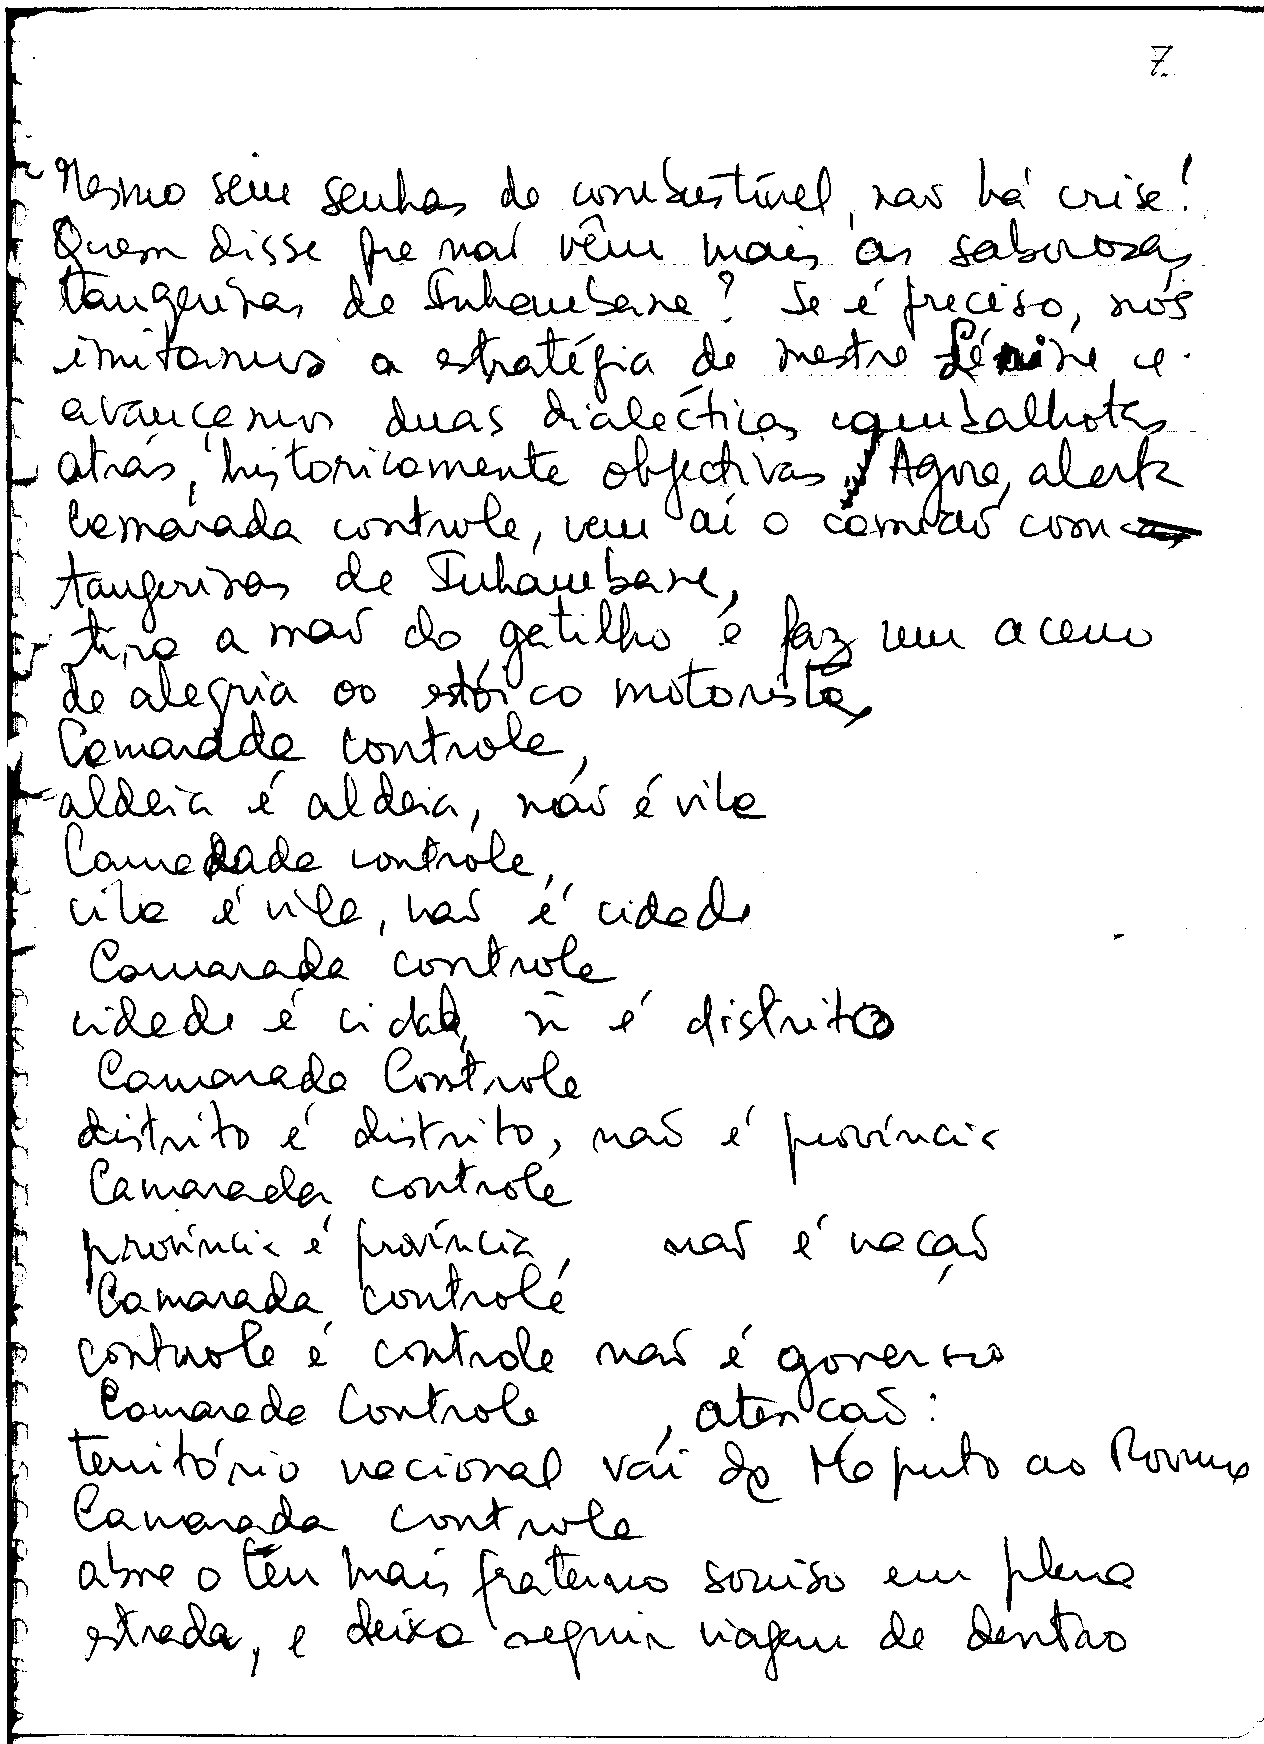 7.
Mesmo sem senhas de combustível, não há crise!
Quem disse que não vêm mais as saborosas
tangerinas de Inhambane? Se é preciso, nós
imitamos a estratégia de mestre Lénine e
avançamos duas dialécticas cambalhotas
atrás, historicamente objectivas Agora, alerta
Camarada controle, vem aí o camião com
tangerinas de Inhambane,
tira a mão do gatilho e faz um aceno
de alegria ao estóico motorista,
Camarada controle,
aldeia é aldeia, não é vila
Camarada controle,
vila é vila, não é cidade
Camarada controle
cidade é cidade, ñ é distrito
Camarada Controle
distrito é distrito, não é província
Camarada controle
província é província, não é nação
Camarada controle
controle é controle não é governo
Camarada Controle, atenção:
território nacional vai do Maputo ao Rovuma
Camarada controle
abre o teu mais fraterno sorriso em plena
estrada, e deixa seguir viagem de dentro